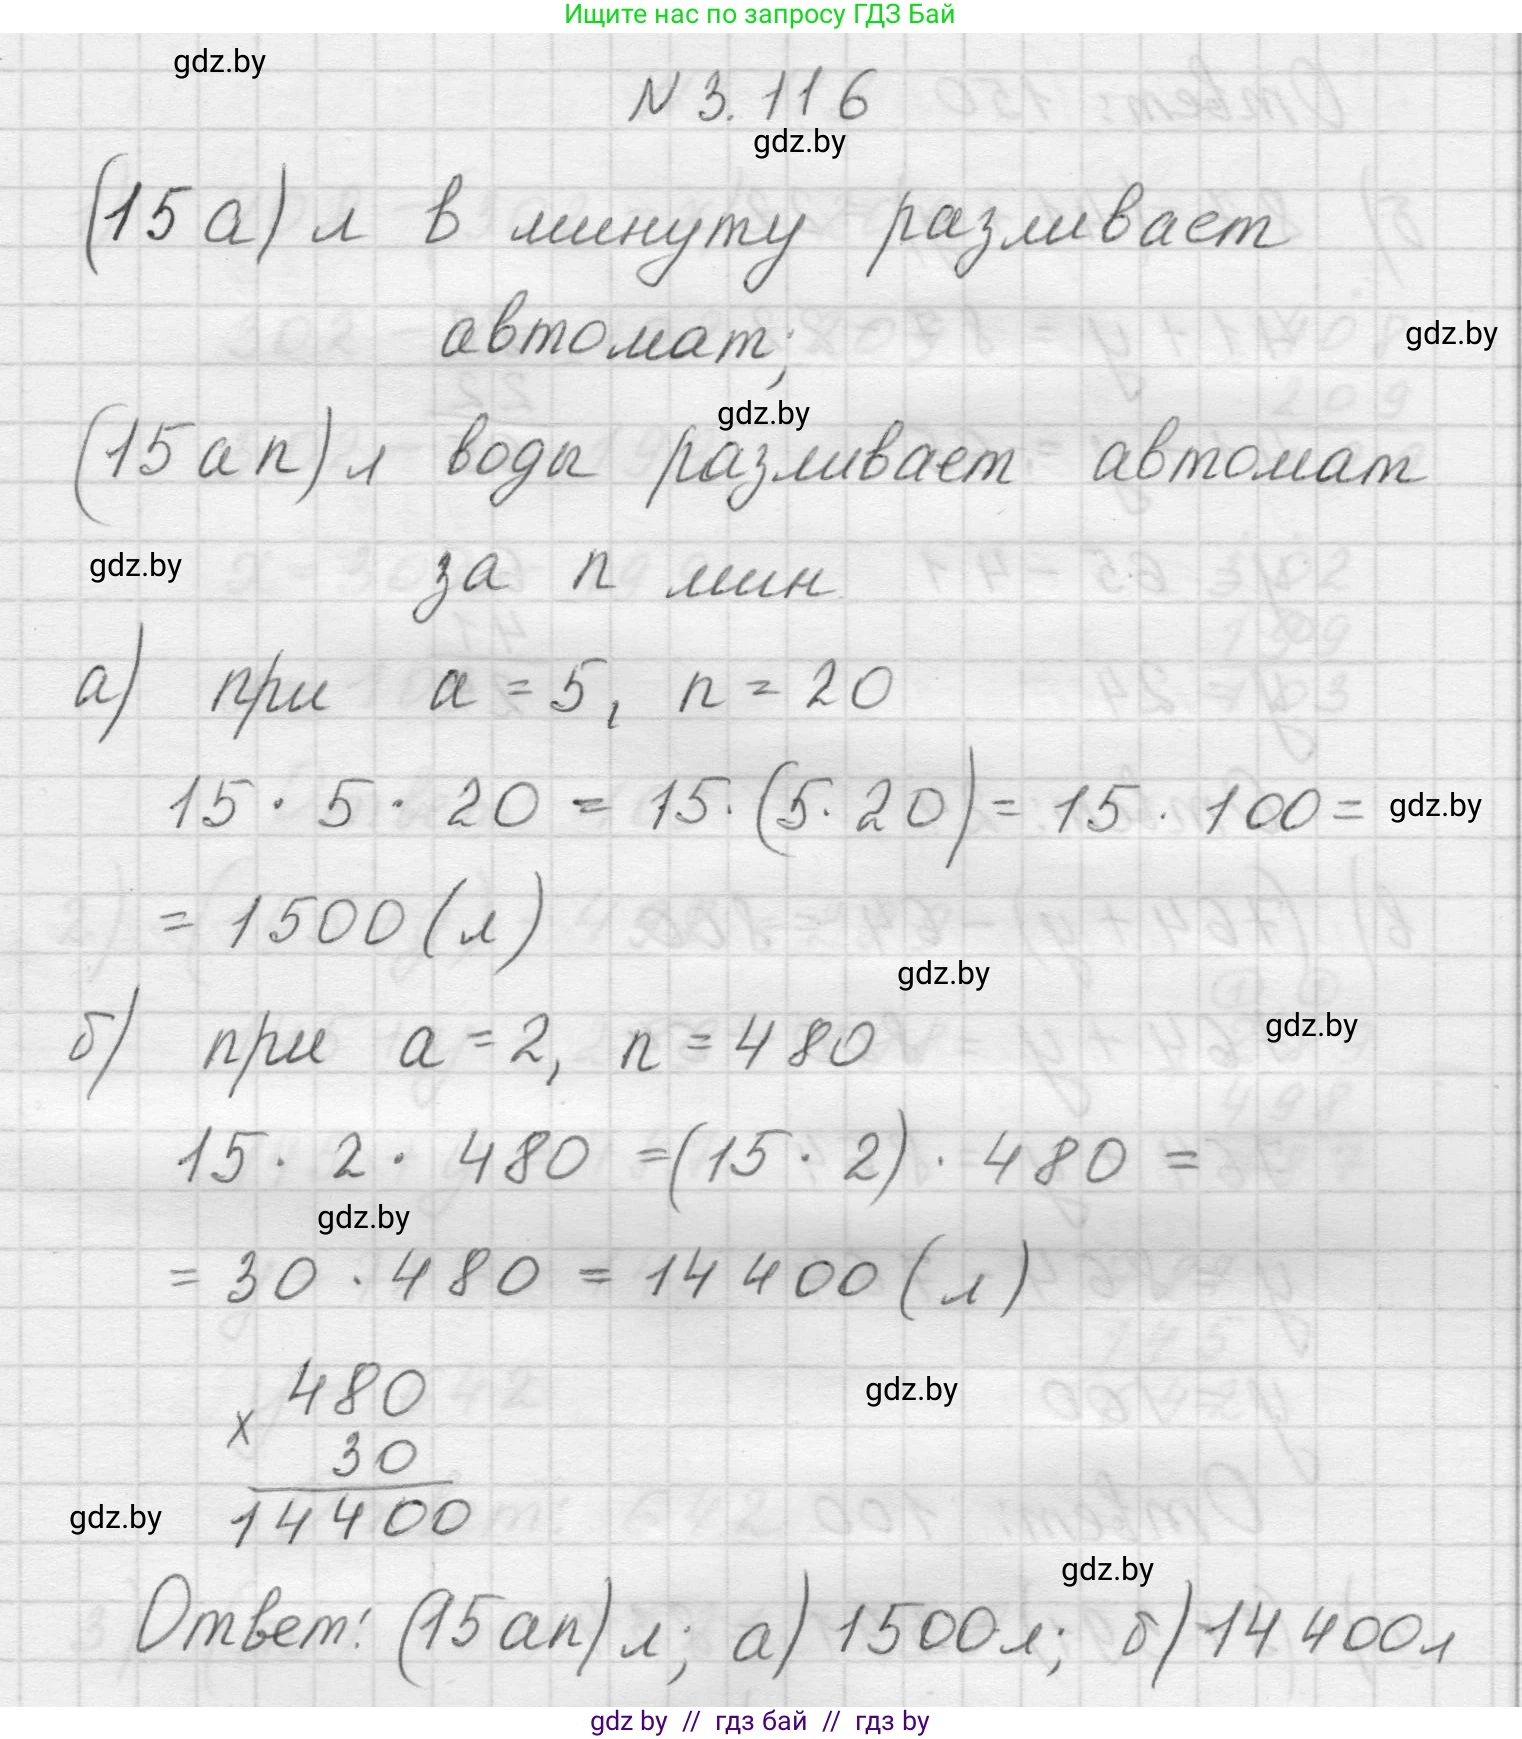 Ищите нас по запросу ГДЗ Бай
gdz.by
N 3.116
gdz.by
(15а) л в минуту разливает
автомат;
gdz.by
gdz.by
(15 а n) л воды разливает автомат
gdz.by
за n мин
а) при а = 5, n = 20
15 · 5 · 20 = 15 · (5 · 20) = 15 · 100 =
gdz.by
= 1500 (л)
gdz.by
gdz.by
б) при а = 2, n = 480
15 · 2 · 480 = (15 · 2) · 480 =
gdz.by
= 30 · 480 = 14 400 (л)
480
gdz.by
х
30
14400
gdz.by
gdz.by
Ответ: (15 а n) л; а) 1500 л; б) 14 400 л
gdz by // гдз бай // гдз by